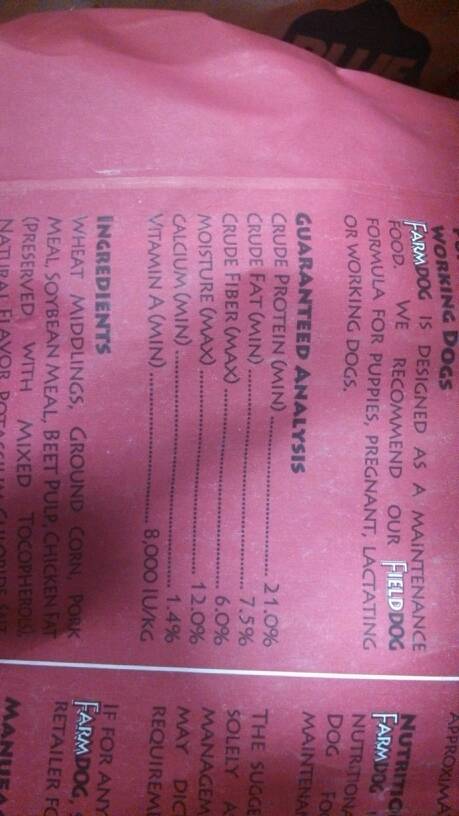 BLUE
WORKING DOGS
FARMDOG IS DESIGNED AS A MAINTENANCE
FOOD. WE RECOMMEND OUR FIELDDOG
FORMULA FOR PUPPIES, PREGNANT, LACTATING
OR WORKING DOGS.
GUARANTEED ANALYSIS
CRUDE PROTEIN (MIN) ........................ 21.0%
CRUDE FAT (MIN) ........................ 7.5%
CRUDE FIBER (MAX) ........................ 6.0%
MOISTURE (MAX) ........................ 12.0%
CALCIUM (MIN) ........................ 1.4%
VITAMIN A (MIN) ........................ 8,000 IU/KG
INGREDIENTS
WHEAT MIDDLINGS, GROUND CORN, PORK
MEAL, SOYBEAN MEAL, BEET PULP, CHICKEN FAT
(PRESERVED WITH MIXED TOCOPHEROLS),
NATURAL FLAVOR, POTASSIUM CHLORIDE, SALT
APPROXIMA
NUTRITIO
FARMDOG
NUTRITIONA
DOG FO
MAINTENAN
THE SUGGE
SOLELY A
MANAGEM
MAY DIC
REQUIREM
IF FOR ANY
FARMDOG, S
RETAILER FO
MANUFA